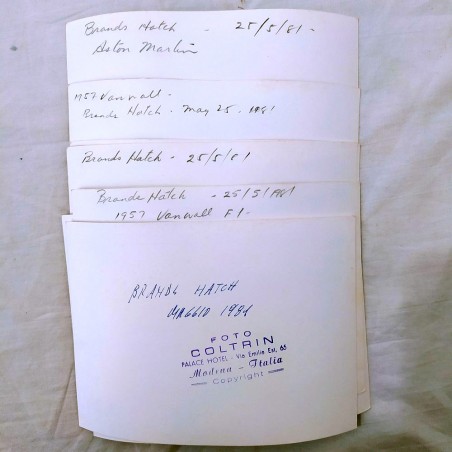 Brands Hatch - 25/5/81 -
Aston Martin
1957 Vanwall -
Brands Hatch - May 25 - 1981
Brands Hatch - 25/5/81
Brands Hatch - 25/5/1981
1957 Vanwall F1 -
BRANDS HATCH
MAGGIO 1981
FOTO
COLTRIN
PALACE HOTEL - Via Emilia Est, 65
Modena - Italia
Copyright